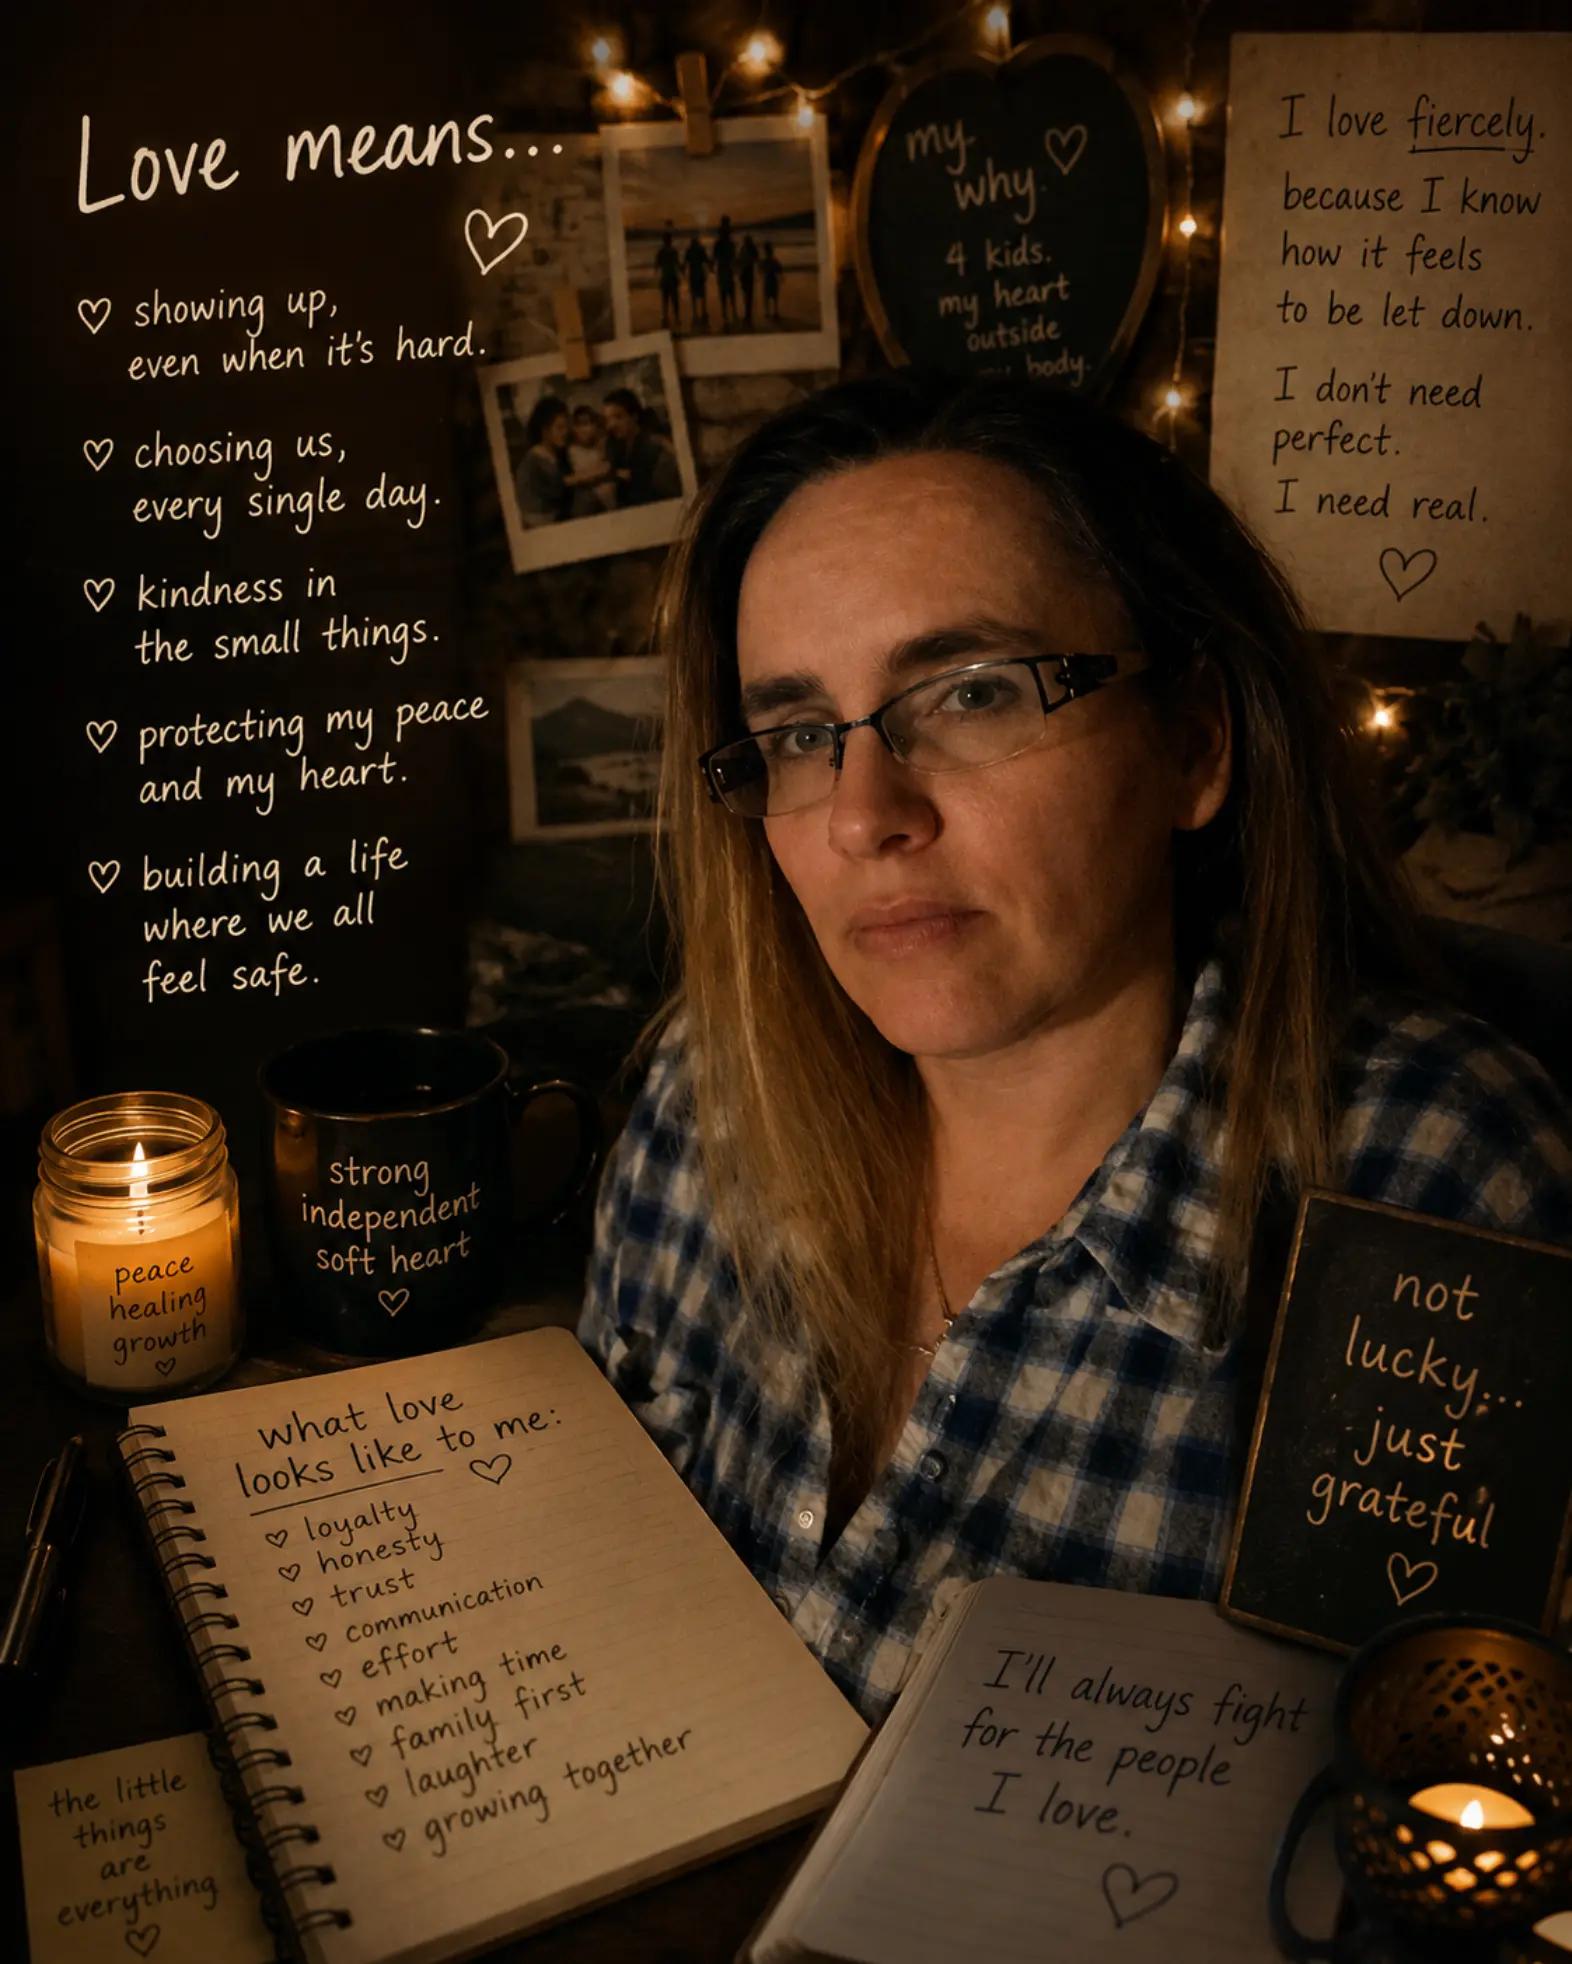 Love means...
showing up,
even when it's hard.
choosing us,
every single day.
kindness in
the small things.
protecting my peace
and my heart.
building a life
where we all
feel safe.
my
why.
4 kids.
my heart
outside
body.
I love fiercely.
because I know
how it feels
to be let down.
I don't need
perfect.
I need real.
peace
healing
growth
strong
independent
soft heart
not
lucky...
just
grateful
what love
looks like to me:
loyalty
honesty
trust
communication
effort
making time
family first
laughter
growing together
I'll always fight
for the people
I love.
the little
things
are
everything